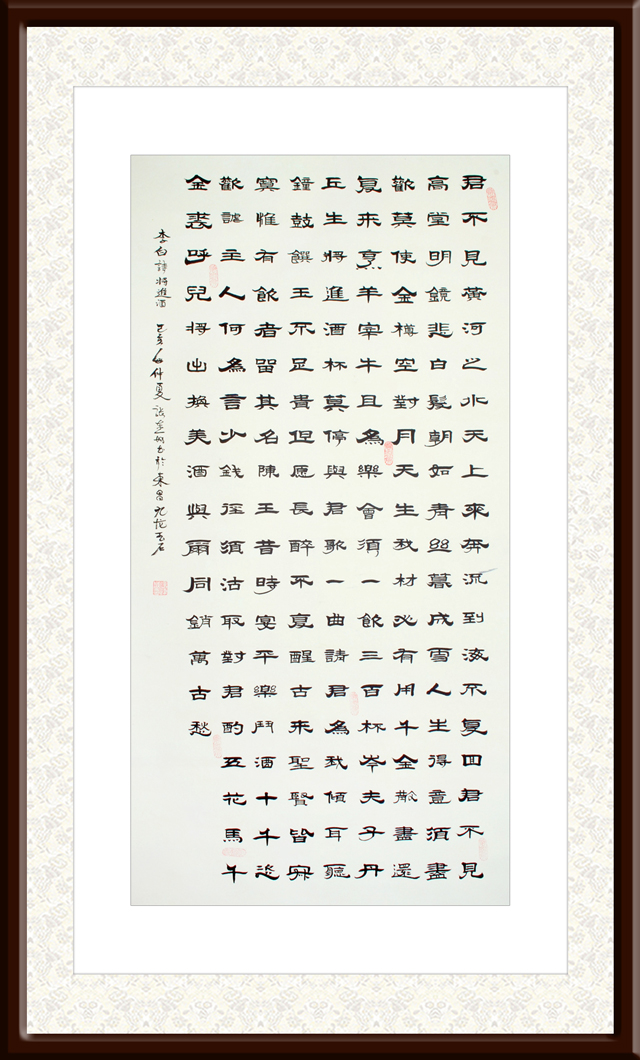 君不見黃河之水天上來奔流到海不复回君不見
高堂明鏡悲白髮朝如青絲暮成雪人生得意須盡
歡莫使金樽空對月天生我材必有用千金散盡還
复来烹羊宰牛且為樂會須一飲三百杯岑夫子丹
丘生將進酒杯莫停與君歌一曲請君為我傾耳聽
鐘鼓饌玉不足貴但愿長醉不复醒古来聖賢皆寂
寞惟有飲者留其名陳王昔時宴平樂鬥酒十千恣
歡謔主人何為言少錢徑須沽取對君酌五花馬千
金裘呼兒將出換美酒與爾同銷萬古愁
李白詩將進酒 己亥年仲夏 書於東昌